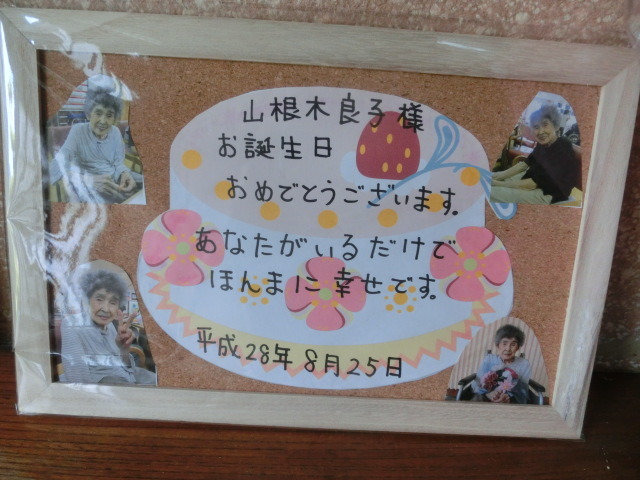 山根木良子様
お誕生日
おめでとうございます。
あなたがいるだけで
ほんまに幸せです。
平成28年8月25日